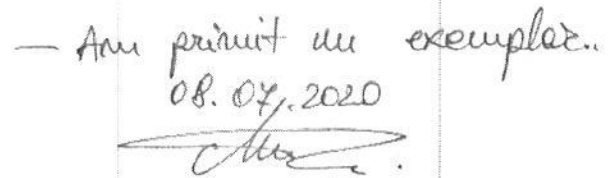 — Am primit un exemplar..
08.07.2020